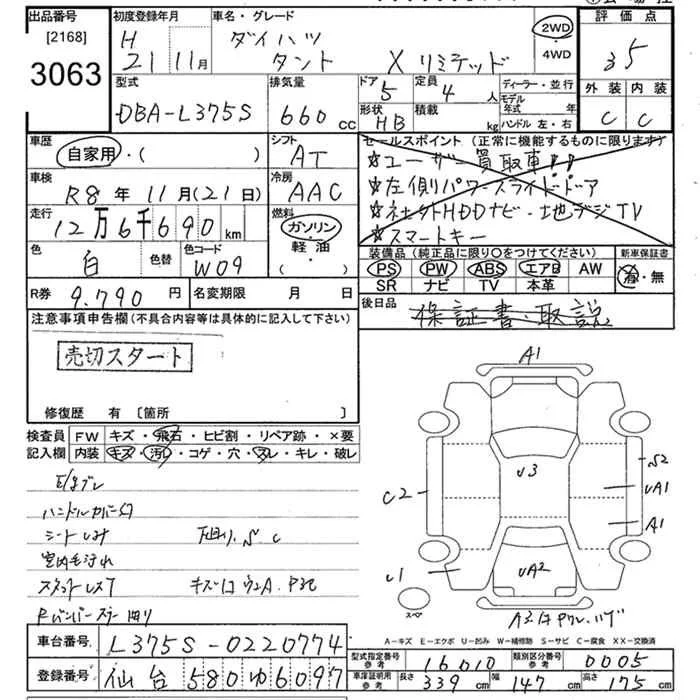 出品番号
[2168]
3063
初度登録年月
H
21 11月
車名・グレード
ダイハツ
タント X リミテッド
2WD
・4WD
評価点
35
外装 内装
C C
型式
DBA-L375S
排気量
660 cc
ドア
5
定員
4 人
形状
HB
積載
kg
ディーラー・並行
モデル年式 年
ハンドル 左・右
車歴
自家用・( )
シフト
AT
セールスポイント (正常に機能するものに限ります)
☆ユーザー買取車!!
☆左側パワースライドドア
☆社外HDDナビ・地デジTV
☆スマートキー
車検
R8 年 11月(21日)
冷房
AAC
走行
12万6千690 km
燃料
ガソリン
・軽油・
( )
色
白
色替
色コード
W09
装備品 (純正品に限り〇をつけてください)
PS PW ABS エアB AW
SR ナビ TV 本革
新車保証書
有・無
R券
9.790 円
名変期限 月 日
後日品
保証書・取説
注意事項申告欄(不具合内容等は具体的に記入して下さい)
売切スタート
修復歴 有 [箇所 ]
検査員記入欄
FW キズ・飛石・ヒビ割・リペア跡・×要
内装 キズ・汚れ・コゲ・穴・スレ・キレ・破レ
ハンドルカバー
シート
室内毛汚れ
A1
U3
S2
UA1
A1
C2
U1
UA2
スペア
A-キズ E-エクボ U-凹み W-補修跡 S-サビ C-腐食 XX-交換済
車台番号
L375S-0220774
登録番号
仙台 580 ゆ 6097
型式指定番号 参考
16010
類別区分番号 参考
0005
車庫証明用 参考
長さ 339 cm 幅 147 cm 高さ 175 cm